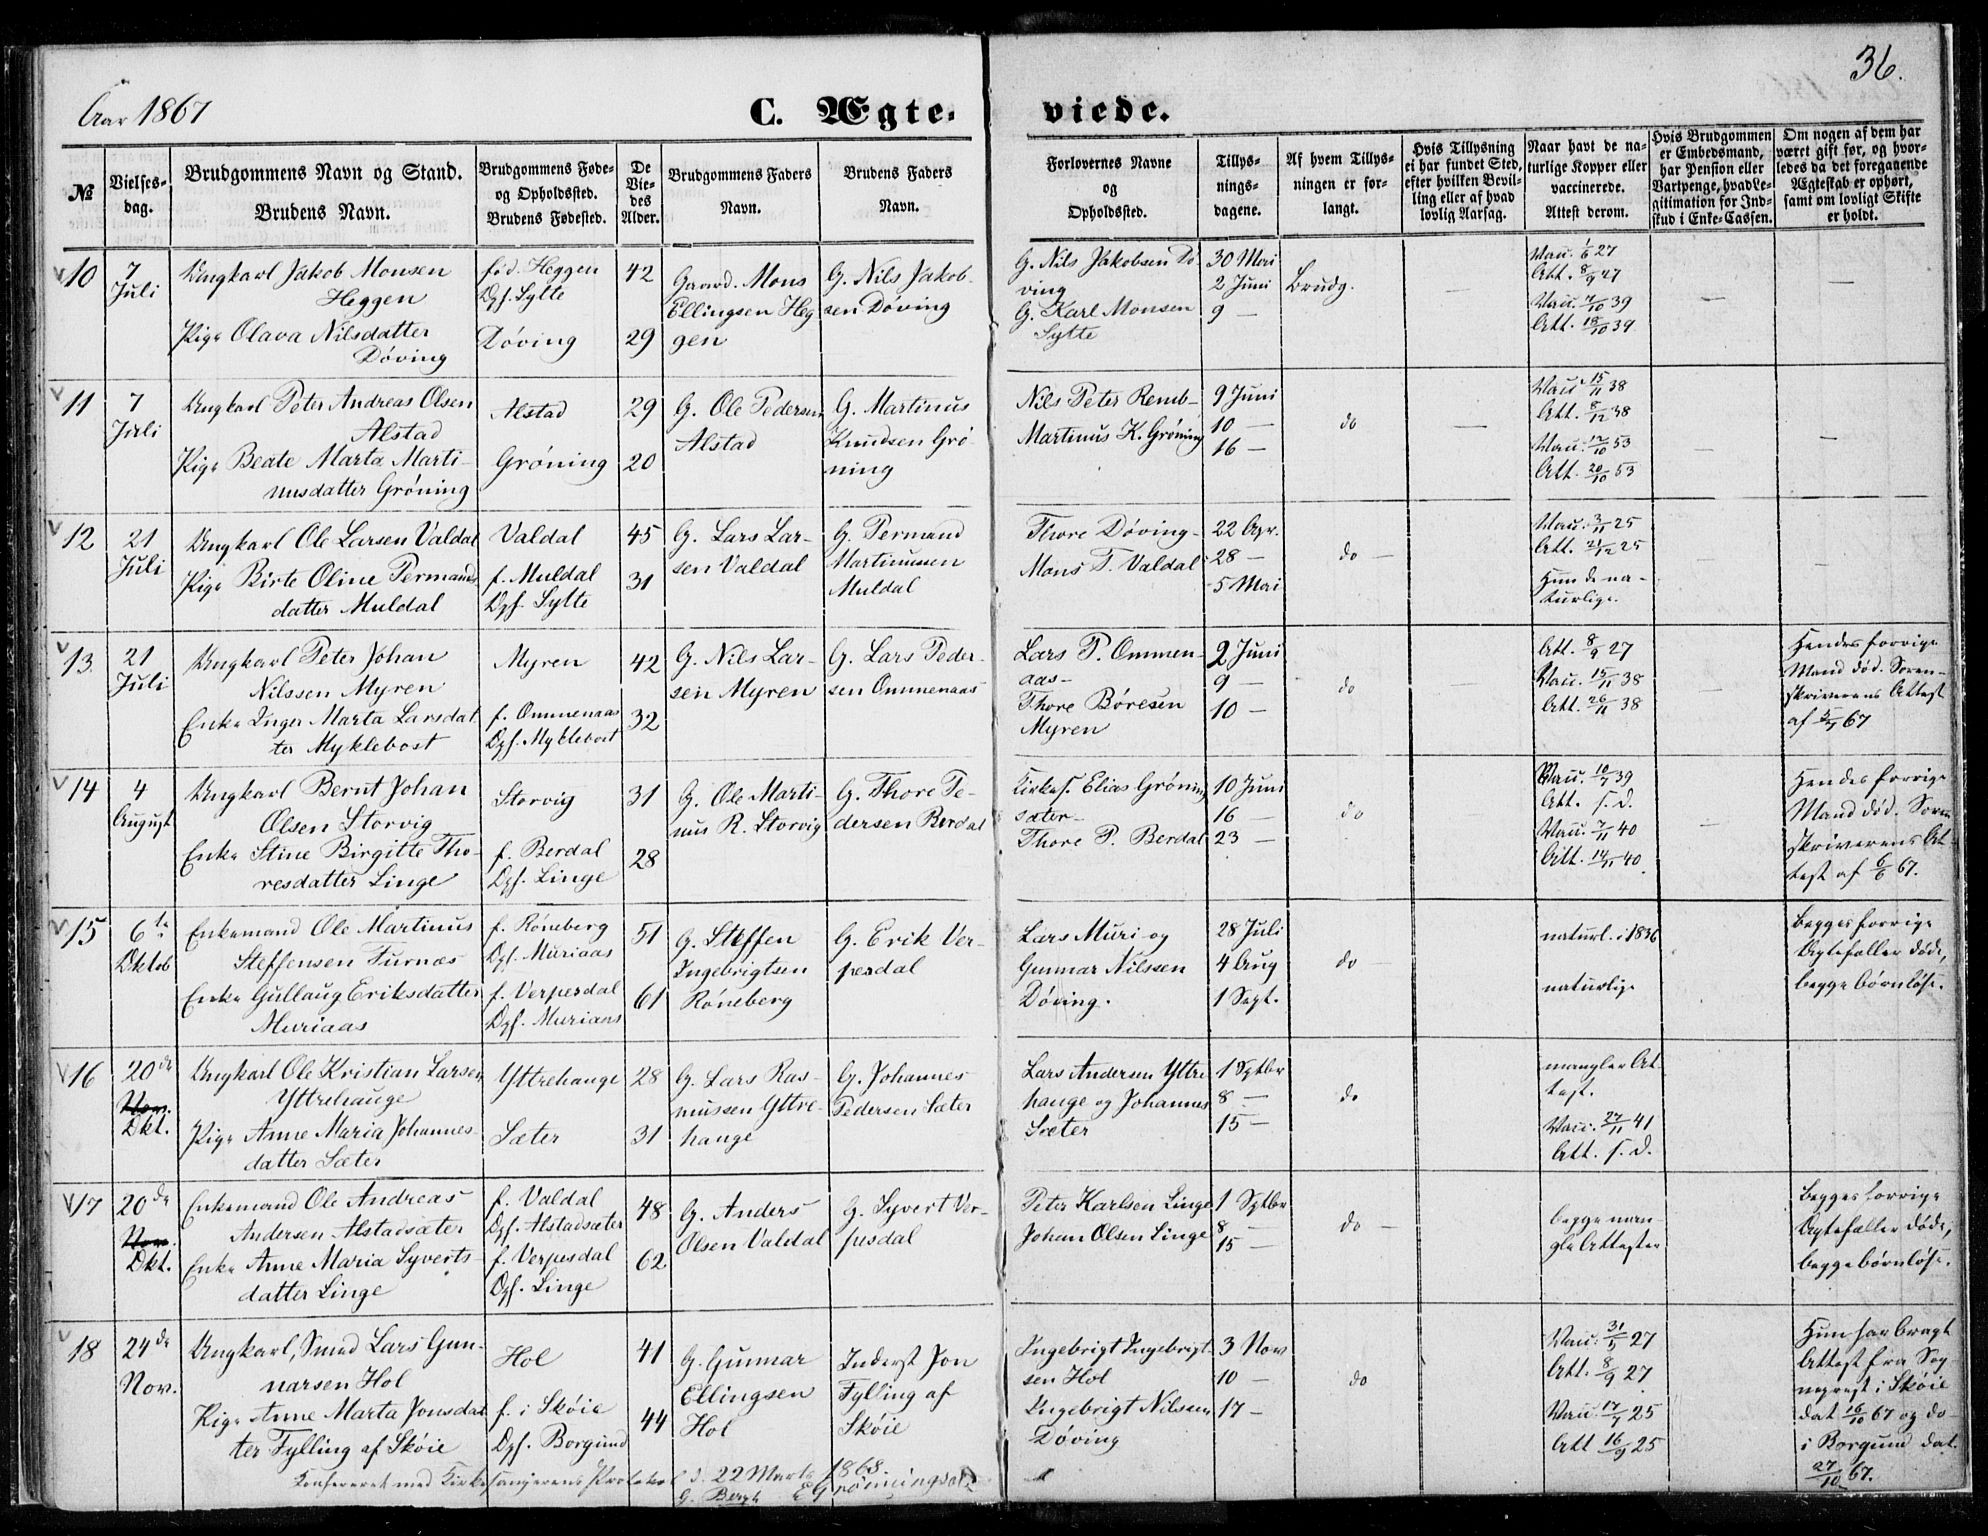 36.
Aar 1867
C. Ægte- viede.
№
Vielses-
dag.
Brudgommens Navn og Stand.
Brudens Navn.
Brudgommens Føde-
og Opholdssted.
Brudens Fødested.
De
Vie-
des
Alder.
Brudgommens Faders
Navn.
Brudens Faders
Navn.
Forlovernes Navne
og
Opholdssted.
Tillys-
nings-
dagene.
Af hvem Tillys-
ningen er for-
langt.
Hvis Tillysning
ei har fundet Sted,
efter hvilken Bevil-
ling eller af hvad
lovlig Aarsag.
Naar havt de na-
turlige Kopper eller
vaccinerede.
Attest derom.
Hvis Brudgommen
er Embedsmand,
har Pension eller
Vartpenge, hvad Le-
gitimation for Ind-
skud i Enke-Cassen.
Om nogen af dem har
været gift før, og hvor-
ledes da det foregaaende
Ægteskab er ophørt,
samt om lovligt Skifte
er holdt.
10
7
Juli
Ungkarl Jakob Monsen
Heggen
Pige Olava Nilsdatter
Döving
föd. Heggen
Opf. Sylte
Döving
42
29
Gaard. Mons
Ellingsen Heg
gen
G. Nils Jakob-
sen Döving
G. Nils Jakobsen Dö-
ving
G. Karl Monsen
Sylte
30 Mai
2 Juni
9 —
Brudg.
—
Vau. 1/6 27
Att. 8/9 27
Vau. 7/10 39
Att. 18/10 39
—
—
11
7
Juli
Ungkarl Peter Andreas Olsen
Alstad
Pige Beate Marta Marti-
nusdatter Gröning
Alstad
Gröning
29
20
G. Ole Pedersen
Alstad
G. Martinus
Knudsen Grö-
ning
Nils Peter Remb-
Martinus K. Gröning
9 Juni
10 —
16 —
do
—
Vau. 15/11 38
Att. 8/12 38
Vau. 12/10 53
Att. 20/10 53
—
—
12
21
Juli
Ungkarl Ole Larsen Valdal
Pige Birte Oline Permands
datter Muldal
Valdal
f. Muldal
Opf. Sylte
45
31
G. Lars Lar-
sen Valdal
G. Permand
Martinussen
Muldal
Thore Döving-
Mons T. Valdal
22 Apr.
28 —
5 Mai
do —
Vau. 3/11 25
Att. 21/12 25
Hun de na-
turlige.
13
21
Juli
Ungkarl Peter Johan
Nilssen Myren
Enke Inger Marta Larsdat
ter Myklebost
Myren
f. Ommenaas
Opf. Myklebost
42
32
G. Nils Lar-
sen Myren
G. Lars Peder-
sen Ommenaas
Lars P. Ommen-
aas-
Thore Böresen
Myren
2 Juni
9 —
10 —
do
—
Att. 8/9 27
Vau. 15/11 38
Att. 26/11 38
—
Hendes forrige
Mand död. Soren-
skriverens Attest
af 5/7 67
14
4
August
Ungkarl Bernt Johan
Olsen Storvig
Enke Stine Birgitte Tho-
resdatter Linge
Storvig
f. Berdal
Opf. Linge
31
28
G. Ole Marti-
nus R. Storvig
G. Thore Pe-
dersen Berdal
Kirkes. Elias Gröning
sæter-
Thore P. Berdal
10 Juni
16 —
23 —
do
Vau. 10/7 39
Att. s. d.
Vau. 7/11 40
Att. 14/11 40.
—
Hendes forrige
Mand död. Soren
skriverens At-
test af 6/6 67.
15
6te
Oktob
Enkemand Ole Martinus
Steffensen Furnæs
Enke Gullaug Eriksdatter
Muriaas
f. Röneberg
Opf. Muriaas
f. Verpesdal
Opf. Muriaas
51
61
G. Steffen
Ingebrigtsen
Röneberg
G. Erik Ver-
pesdal
Lars Muri og
Gunnar Nilssen
Döving.
28 Juli
4 Aug
1 Sept.
do —
naturl. i 1836
naturlige
Begges forrige
Ægtefæller döde,
begge börnlöse.
16
20de
Nov.
Okt.
Ungkarl Ole Kristian Larsen
Yttrehauge
Pige Anne Maria Johannes-
datter Sæter
Yttrehauge
Sæter
28
31
G. Lars Ras-
mussen Yttre-
hauge
G. Johannes
Pedersen Sæter
Lars Andersen Yttre
hauge og Johannes
Sæter
1 Sptbr
8 —
15 —
do
mangler At
test.
Vau. 27/11 41
Att. s. d.
17
20de
Nov.
Okt.
Enkemand Ole Andreas
Andersen Alstadsæter
Enke Anne Maria Syverts-
datter Linge
f. Valdal
Opf. Alstadsæter
f. Verpesdal
Opf. Linge
48
62
G. Anders
Olsen Valdal
G. Syvert Ver-
pesdal
Peter Karlsen Linge
Johan Olsen Linge
1 Sptbr
8 —
15 —
do —
begge man-
gle Attester
Begges forrige
Ægtefæller döde,
begge börnlöse.
18
24de
Nov.
Ungkarl, Smed Lars Gun-
narsen Hol
Pige Anne Marta Jonsdat
ter Fylling af Sköie
Hol
f. i Sköie
Opf. Borgund
41
44
G. Gunnar
Ellingsen
Hol
Inderst Jon
Fylling af
Sköie
Ingebrigt Ingebrigt-
sen Hol
Ingebrigt Nilssen
Döving
3 Nov
10 —
17 —
do
Vau. 31/5 27
Att. 8/9 27
Vau. 17/7 25
Att 16/9 25
Hun har bragt
Attest fra Sog
neprest i Sköie
dat 16/10 67 og do-
i Borgund dat.
27/10 67.
Konfereret med Kirkesangerens Protokol d. 22 Marts 1868
G. Bergh E Gröningsæter